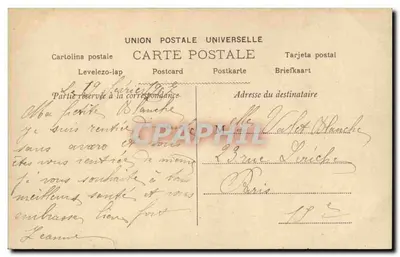 UNION POSTALE UNIVERSELLE
CARTE POSTALE
Cartolina postale
Tarjeta postal
Levelezo-lap Postcard Postkarte Briefkaart
Le 19
Partie réservée à la correspondance
Adresse du destinataire
Ma petite Blanche
je suis rentrée
sans avaro et vous
êtes vous rentrée de même
je vous souhaite à
meilleures santé et vous
embrasse bien fort
Jeanne
Mlle Valet Blanche
23 rue
Paris
18e
Cartepostale